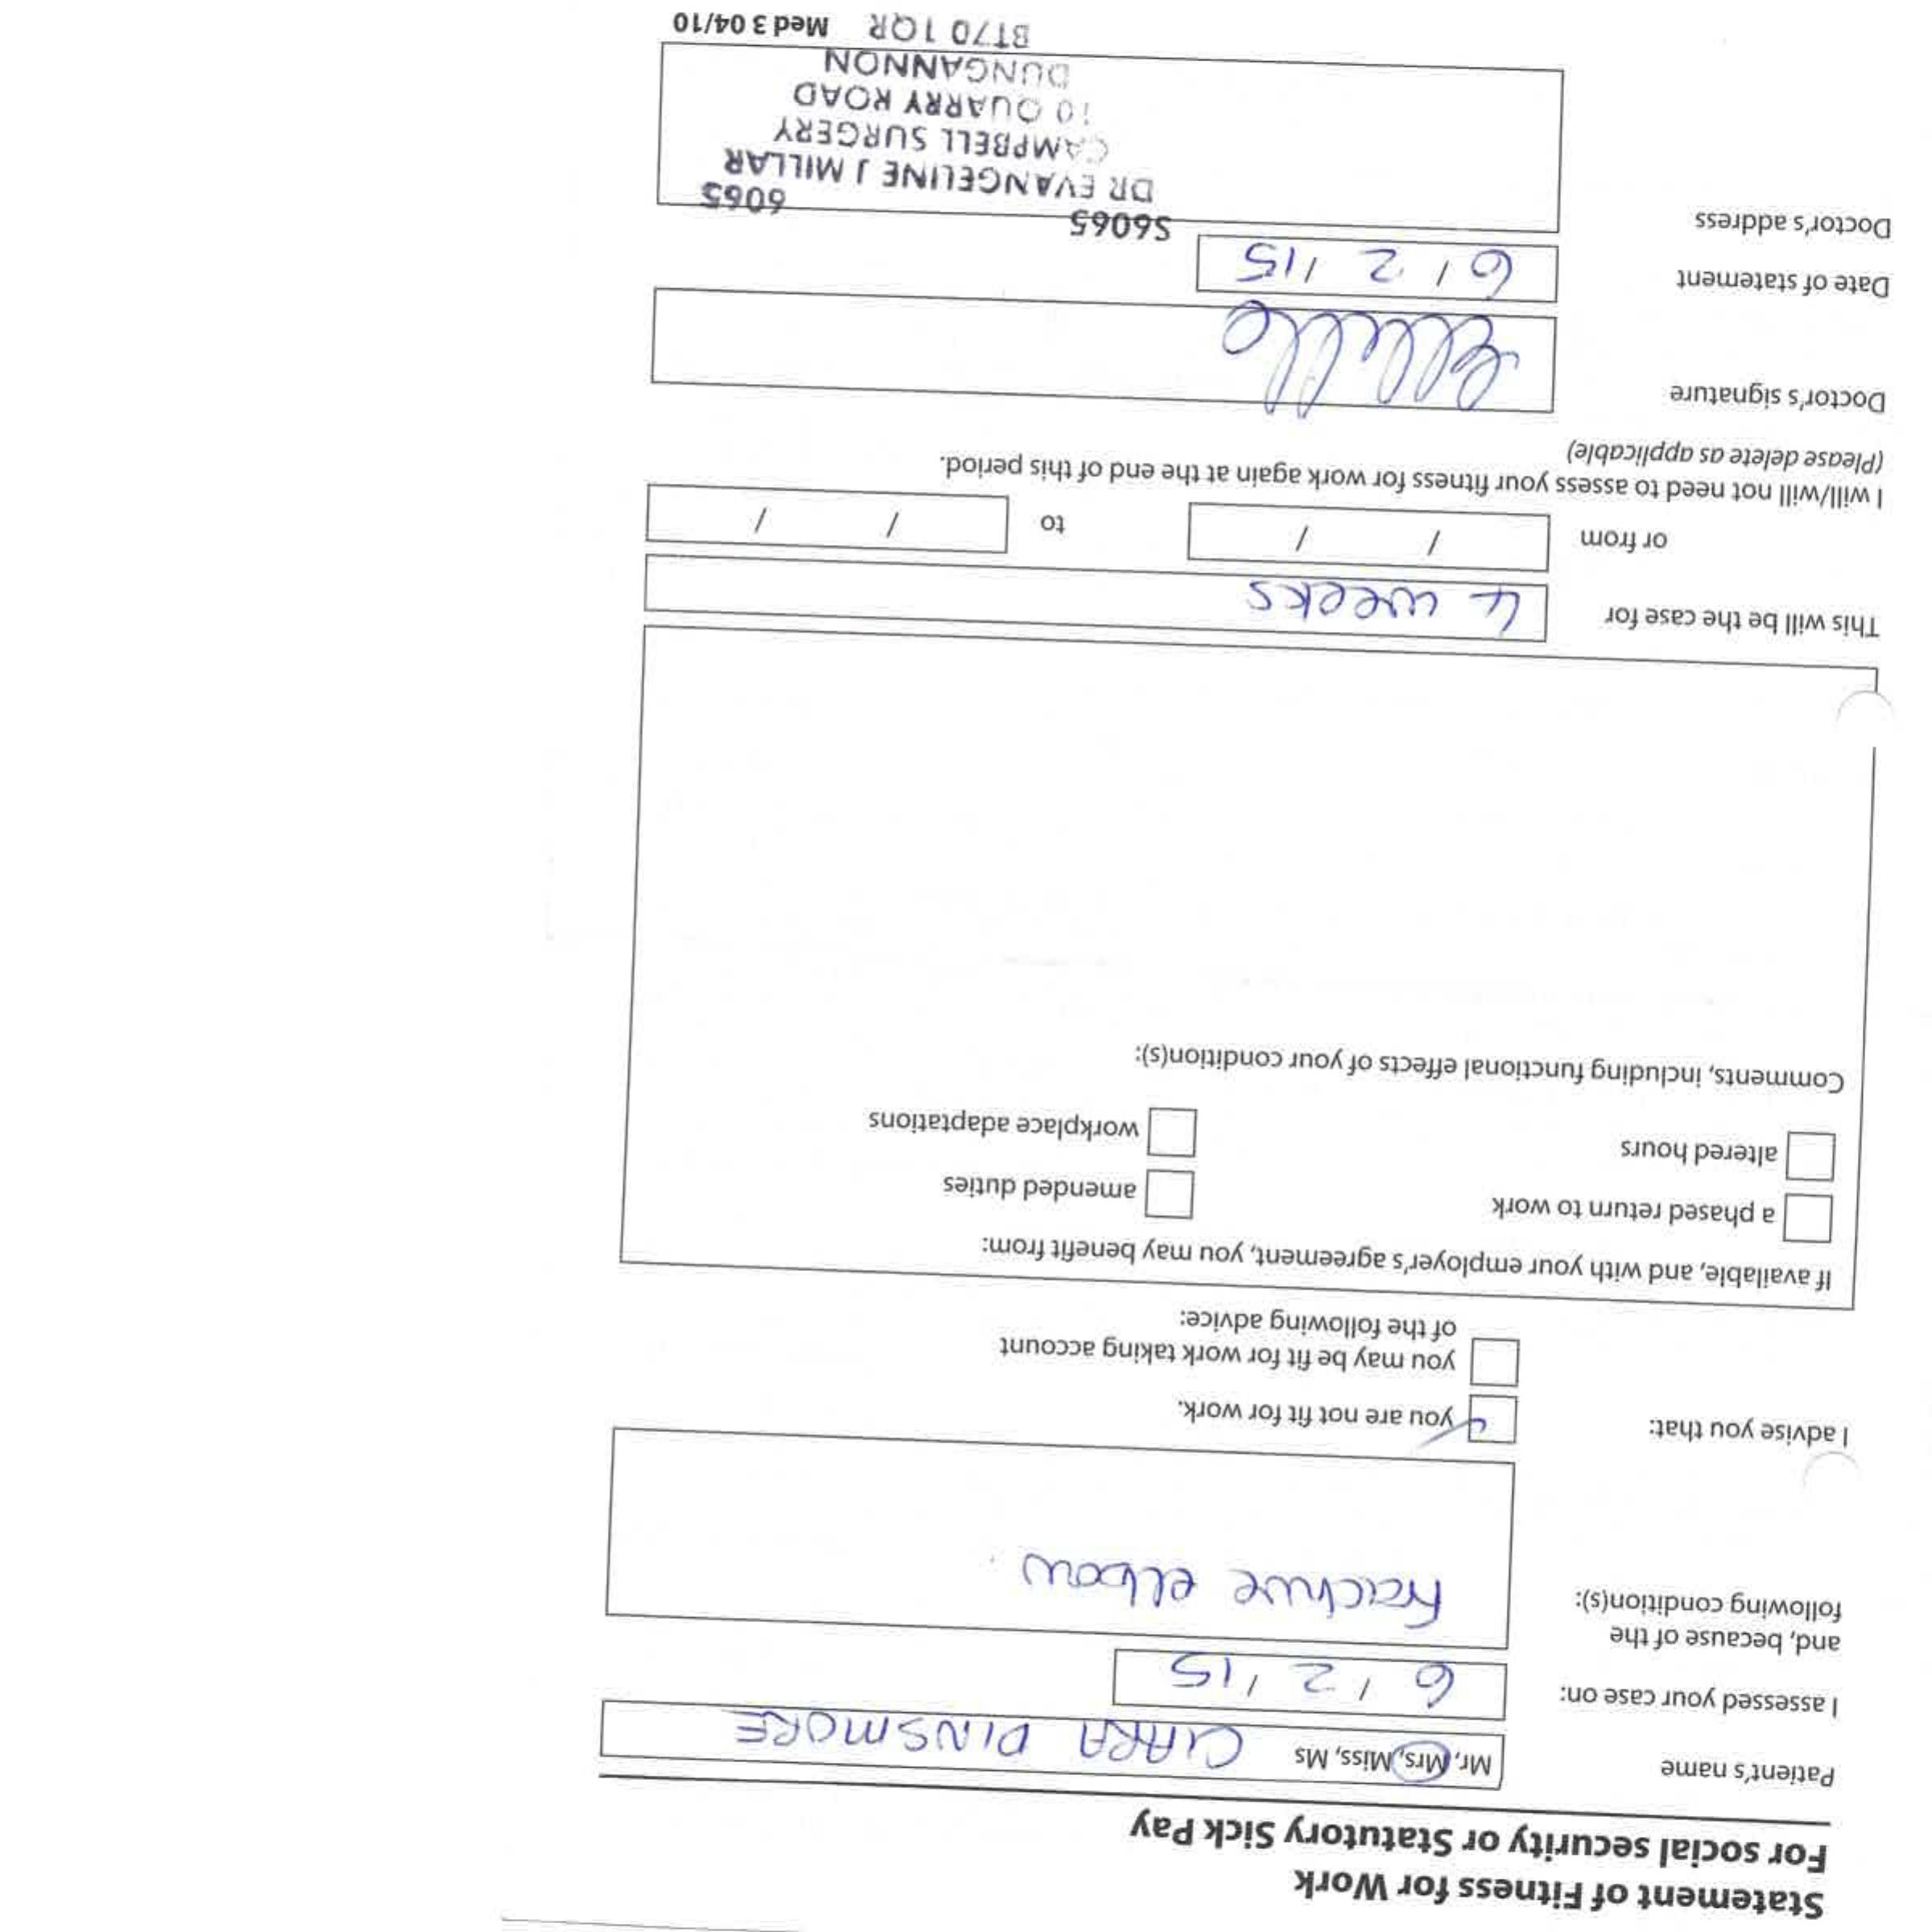 Statement of Fitness for Work
For social security or Statutory Sick Pay
Patient's name Mr, Mrs, Miss, Ms CIARA DINSMORE
I assessed your case on: 6 / 2 / 15
and, because of the
following condition(s): Fracture elbow.
I advise you that: you are not fit for work.
you may be fit for work taking account
of the following advice:
If available, and with your employer's agreement, you may benefit from:
a phased return to work amended duties
altered hours workplace adaptations
Comments, including functional effects of your condition(s):
This will be the case for 4 weeks
or from / / to / /
I will/will not need to assess your fitness for work again at the end of this period.
(Please delete as applicable)
Doctor's signature
Date of statement 6 / 2 / 15
Doctor's address
S6065 6065
DR EVANGELINE J MILLAR
CAMPBELL SURGERY
10 QUARRY ROAD
DUNGANNON
BT70 1QR Med 3 04/10